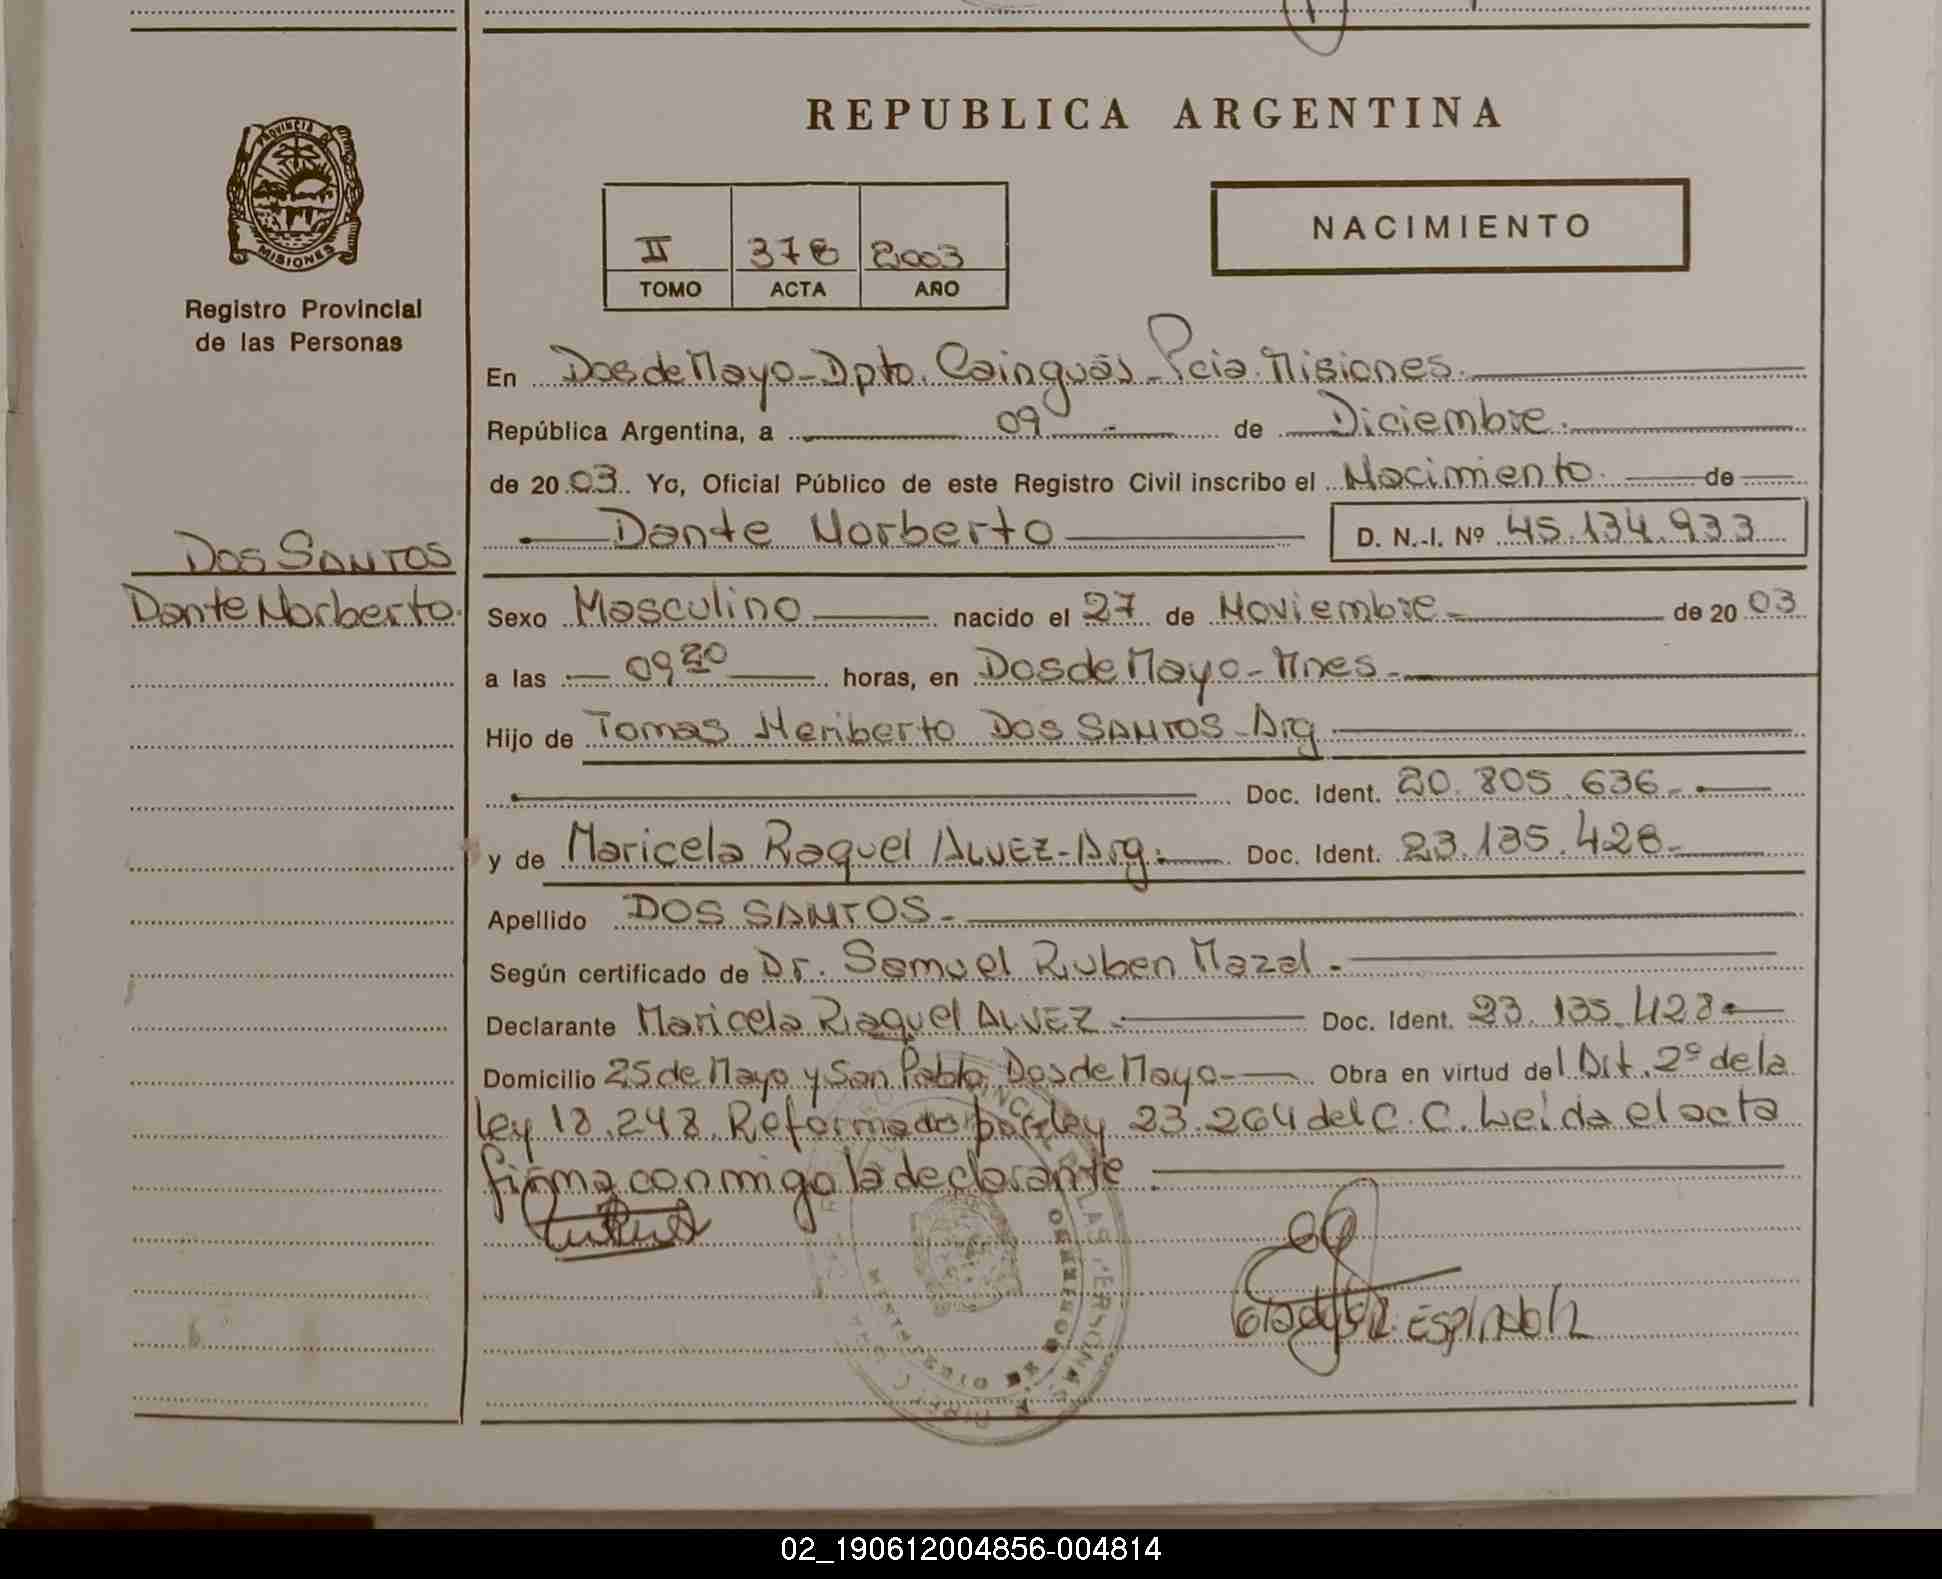 REPUBLICA ARGENTINA
PROVINCIA DE
MISIONES
Registro Provincial
de las Personas
II 378 2003
TOMO ACTA AÑO
NACIMIENTO
En Dos de Mayo - Dpto. Cainguás - Pcia. Misiones.
República Argentina, a 09 de Diciembre.
de 2003. Yo, Oficial Público de este Registro Civil inscribo el Nacimiento de
Dante Norberto D. N. I. Nº 45.134.933
DOS SANTOS
Dante Norberto.
Sexo Masculino nacido el 27 de Noviembre de 2003
a las 09 20 horas, en Dos de Mayo - Mnes.
Hijo de Tomas Heriberto DOS SANTOS - Arg
Doc. Ident. 20.805.636
y de Maricela Raquel ALVEZ - Arg. Doc. Ident. 23.135.428
Apellido DOS SANTOS
Según certificado de Dr. Samuel Ruben Mazal
Declarante Maricela Raquel ALVEZ Doc. Ident. 23.135.428
Domicilio 25 de Mayo y San Pablo, Dos de Mayo Obra en virtud del Art. 2º de la
ley 18.248. Reformado por ley 23.264 del C. C. Leída el acta
firma conmigo la declarante
ESPINDOLA
02_190612004856-004814